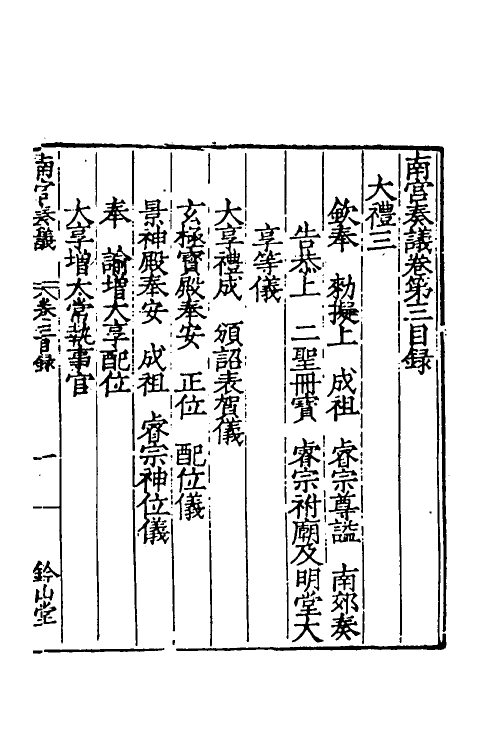 南宮奏議卷第三目録
大禮三
欽奉　勑擬上　成祖　睿宗尊謚　南郊奏
告恭上　二聖冊寶　睿宗祔廟及明堂大
享等儀
大享禮成　頒詔表賀儀
玄極寶殿奉安　正位　配位儀
景神殿奉安　成祖　睿宗神位儀
奉　諭增大享配位
大享增太常執事官
南宮奏議　卷三目録　一　鈐山堂